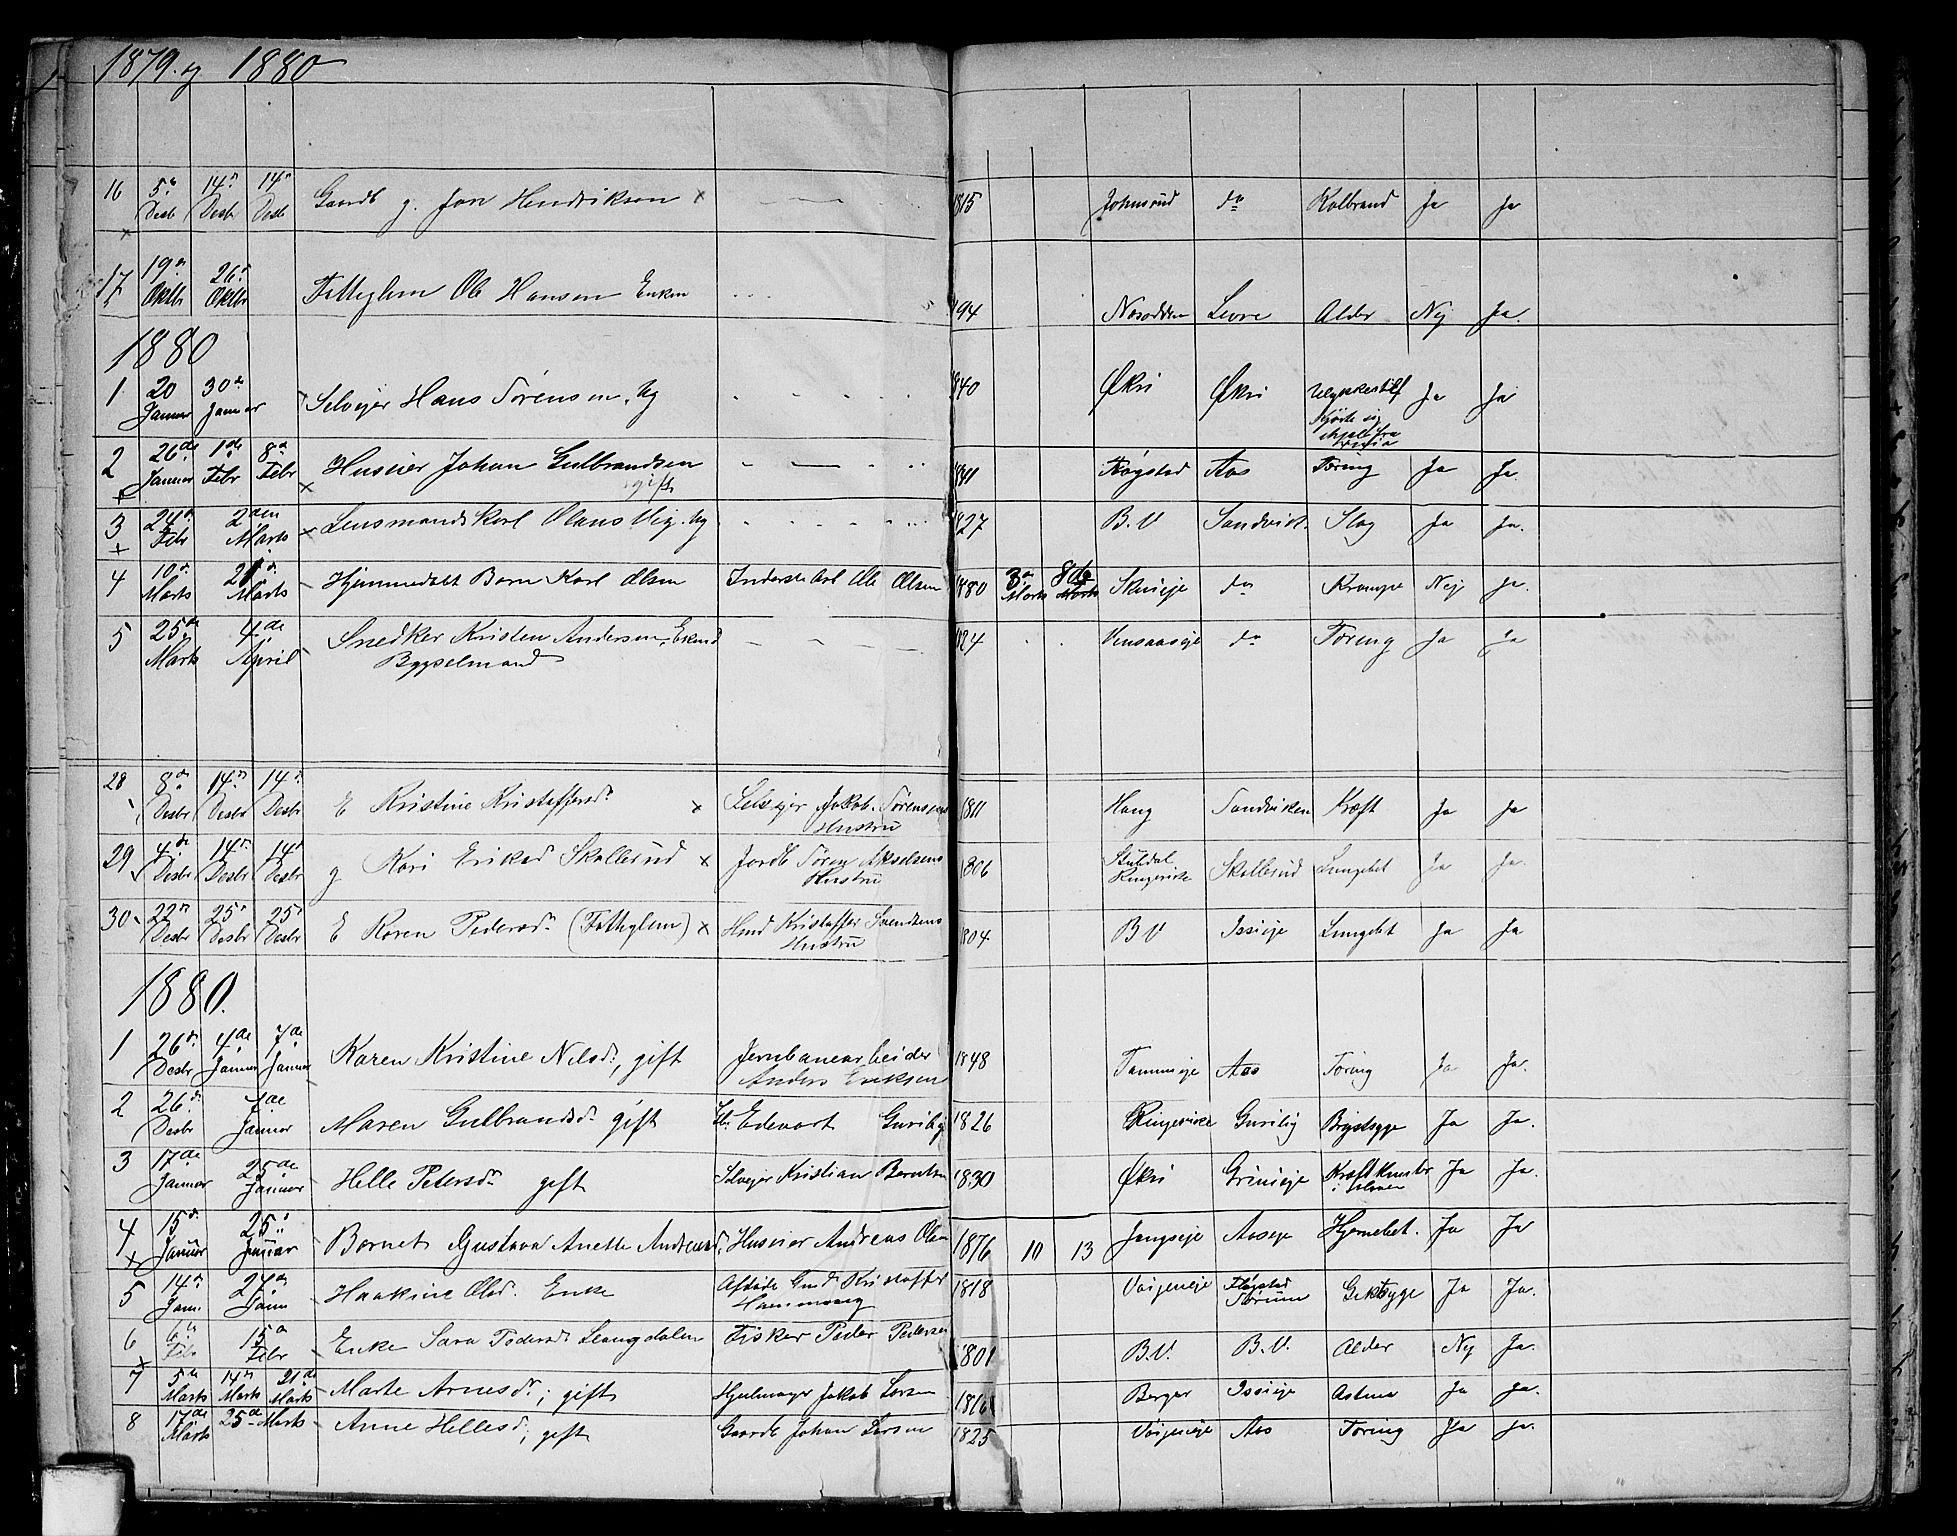 1879. og 1880
16 5te Desbr 14de Desbr 14de Desbr Gaardb g. Jon Hendriksen x 1815 Johnsrud do Kolbrand Ja Ja
17 19de Oktbr 26de Oktbr Fatteglem Ole Hansen Enkem 94 Nesodden Levre Alder Nej Ja.
1880
1 20 Januar 30de Januar Selvejer Hans Sørensen, Ug 40 Økri Økri Ulykkestilf Ja Ja
Kjørte sig ihjel fra
2 26de Januar 1de Febr 8de Febr x Huseier Johan Gulbrandsen 41 Trøgstad Aas Tæring Ja Ja.
gift
3 24de Febr 2den Marts x Lensmandskarl Olaus Vig. Ug 27 B.V Sandvik. Slag Ja Ja.
4 10de Marts 21de Marts Hjemmedøbt Barn Karl Olsen Inderste Ole Olsen 1880 3de Marts 8de Marts Skuieje do Krampe Nej Ja
5 25de Marts 4de April Snedker Kristen Andersen, Enkmd 24 do Tæring Ja Ja
Bygselmand
28 8de Desbr 14de Desbr 14de Desbr E Kristine Kristoffersdr x Selvejer Jakob Sørensens Hustru 1811 Haug Sandviken Kræft Ja Ja
29 4de Desbr 14de Desbr 14de Desbr g Kari Eriksd Skollerud x Jordb Søren Akselsens Hustru 1806 Ringerike Skollerud Lungebet Ja Ja.
30 22de Desbr 25de Desbr 25de Desbr E Karen Pedersdr (Fatteglem) x Hmd Kristoffer Svendsens Hustru 1804 B V Isieje Lungebet Ja Ja
1880.
1 26de Desbr 4de Januar 7de Januar Karen Kristine Nelsdr, gift Jernbanearbeider Anders Eriksen 1848 Tanumeje Aas Tæring Ja Ja.
2 26de Desbr 7de Januar Maren Gulbrandsdr gift Edevart Gurilig 1826 Ringerike Gurilig Brystsyge Ja Ja.
3 17de Januar 25de Januar Helle Petersdr gift Selvejer Kristian Berntsen 1830 Økri Grinieje Kræftknuder i Maven Ja Ja.
4 15de Januar 25de Januar Barnet Gustava Anette Andreasd. Huseier Andreas Olsen 1876 10 13 Jongseje Aaseje Hjernebet. Ja Ja
5 14de Jan. 27de Janu Haakine Olsd. Enke Afdøde Gmd Kristoffer 1818 Vøjeneje Gigtsyge Ja Ja.
6 6te Febr 15de Febr Enke Sara Pedersdr Leangdalen Fisker Peder Pedersen 1801 B.V. B.V. Alder Nej Ja.
7 5te Marts 14de Marts 21de Marts Marte Arnesdr; gift Hjulmager Jakob Larsen 1816 Berger Isieje Astma Ja Ja.
8 17de Marts 25de Marts Anne Hellesd; gift Gaardb Johan Larsen 1825 Vøjeneje Aas Tæring Ja Ja.